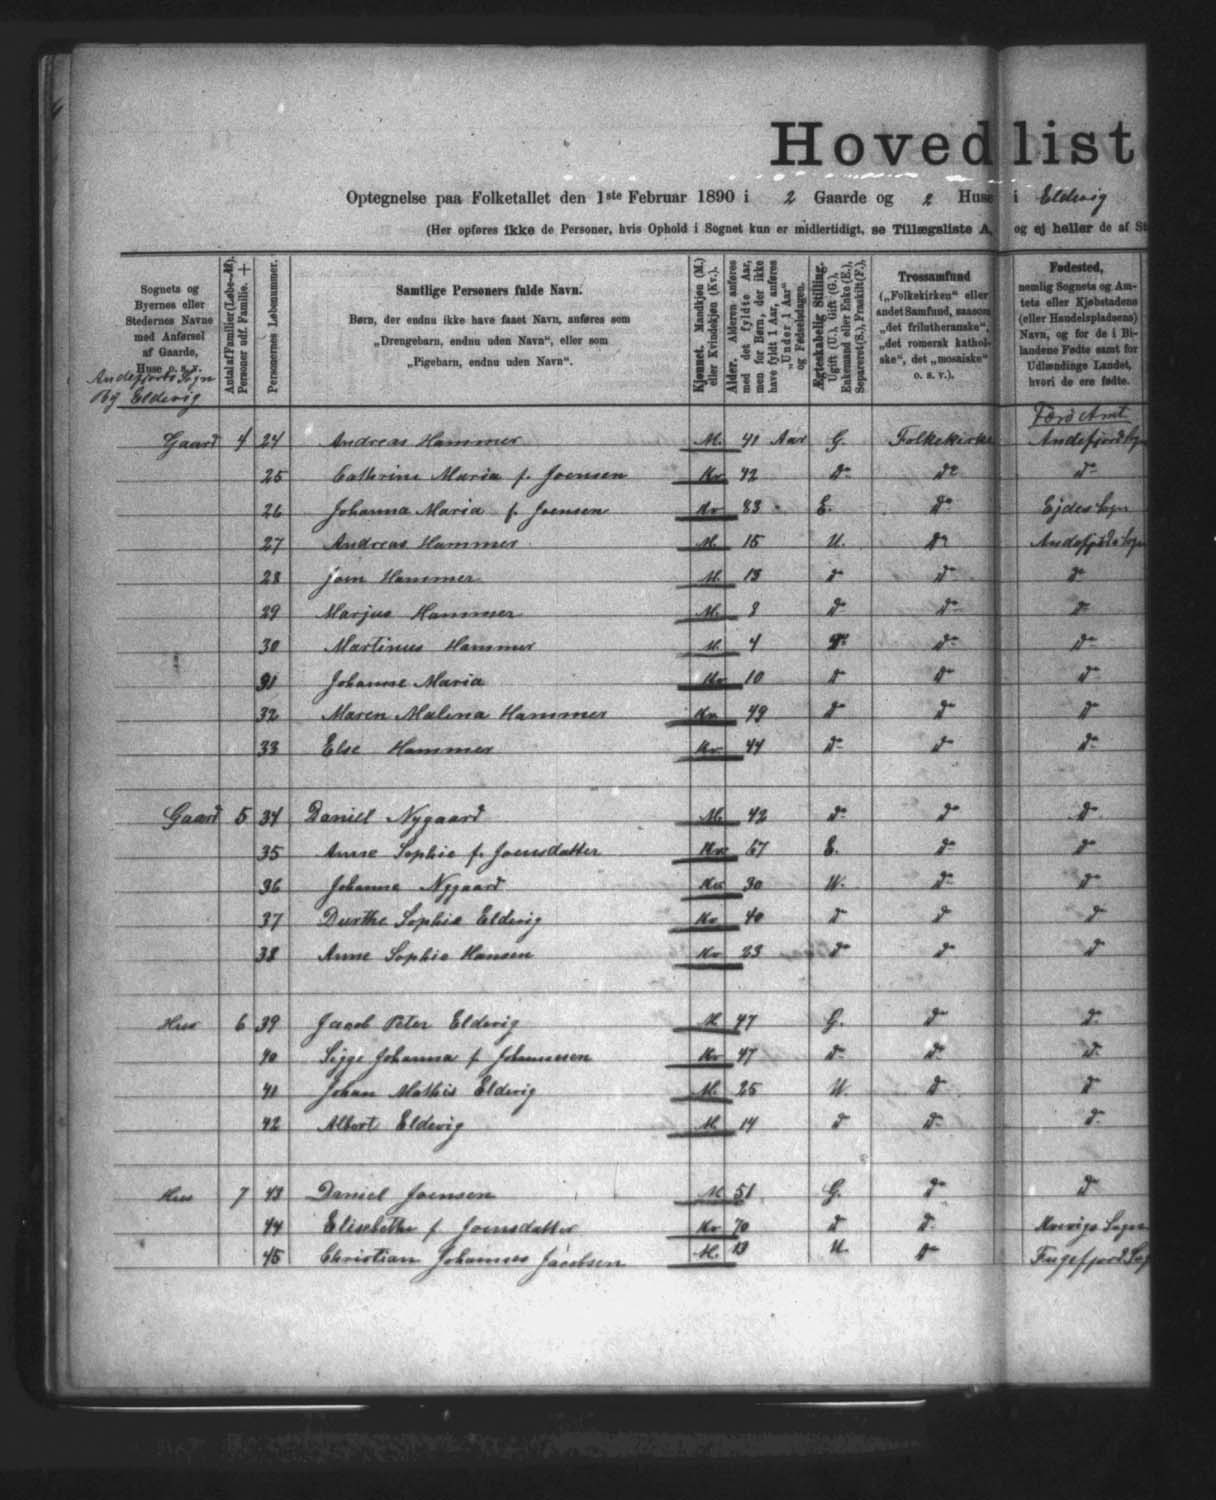 Hovedlist
Optegnelse paa Folketallet den 1ste Februar 1890 i 2 Gaarde og 2 Huse i Eldevig
(Her opføres ikke de Personer, hvis Ophold i Sognet kun er midlertidigt, se Tillægsliste A, og ej heller de af St
Sognets og Byernes eller Stedernes Navne med Anførsel af Gaarde, Huse o. s. v.
Antal af Familier (Løbe-№). Personer udf. Familie. +
Personernes Løbenummer.
Samtlige Personers fulde Navn.
Børn, der endnu ikke have faaet Navn, anføres som
„Drengebarn, endnu uden Navn“, eller som
„Pigebarn, endnu uden Navn“.
Kjønnet. Mandkjøn (M.) eller Kvindekjøn (Kv.).
Alder. Alderen anføres med det fyldte Aar, men for Børn, der ikke have fyldt 1 Aar, anføres „Under 1 Aar“ og Fødselsdagen.
Ægteskabelig Stilling. Ugift (U.), Gift (G.), Enkemand eller Enke (E.), Separeret (S.), Fraskilt (F.).
Trossamfund
(„Folkekirken“ eller andet Samfund, saasom „det frilutheranske“, „det romersk katholske“, det „mosaiske“ o. s. v.).
Fødested,
nemlig Sognets og Amtets eller Kjøbstadens (eller Handelspladsens) Navn, og for de i Bilandene Fødte samt for Udlændinge Landet, hvori de ere fødte.
Andefjords Sogn
By Eldevig
Færø Amt
Gaard 4 24 Andreas Hammer M. 41 Aar G. Folkekirke Andefjord Sogn
25 Cathrine Maria f. Joensen Kv 42 do do do
26 Johanna Maria f. Joensen Kv 83 E. do Ejdes Sogn
27 Andreas Hammer M. 15 U. do Andefjords Sogn
28 Joen Hammer M. 13 do do do
29 Marjus Hammer M. 8 do do do
30 Martinus Hammer M. 4 do do do
31 Johanne Maria Kv 10 do do do
32 Maren Malena Hammer Kv 49 do do do
33 Else Hammer Kv 44 do do do
Gaard 5 34 Daniel Nygaard M. 42 do do do
35 Anne Sophie f. Joensdatter Kv 67 E. do do
36 Johanne Nygaard Kv 30 U. do do
37 Durthe Sophie Eldevig Kv 40 do do do
38 Anne Sophie Hansen Kv 23 do do do
Hus 6 39 Jacob Peter Eldevig M 47 G. do do
40 Sigge Johanna f Johannesen Kv 47 do do do
41 Johan Mathis Eldevig M. 25 U. do do
42 Albert Eldevig M. 14 do do do
Hus 7 43 Daniel Joensen M 51 G. do do
44 Elisabethe f. Joensdatter Kv 70 do do Kvevigs Sogn
45 Christian Johannes Jacobsen M. 13 U. do Fugefjord Sog